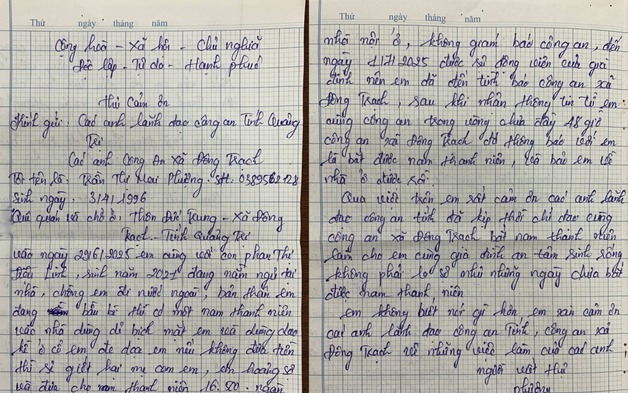 Thứ ngày tháng năm
Cộng hoà - Xã hội - Chủ nghĩa
Độc lập - Tự do - Hạnh phúc
Thư Cảm ơn
Kính gửi: Các anh lãnh đạo công an Tỉnh Quảng
Trị
Các anh Công An xã Đông Trạch
Tôi tên là: Trần Thị Mai Phương. sđt: 0389562728
Sinh ngày: 3/4/1996
Quê quán và chỗ ở: Thôn Đức Trung - Xã Đông
Trạch - Tỉnh Quảng Trị
Vào ngày 29/6/2025 em cùng với con phan Thị
sinh năm 2021 đang nằm ngủ tại
nhà, chồng em đi nước ngoài, bản thân em
đang bầu bì thì có một nam thanh niên
vào nhà dùng bịt mặt em và dùng dao
kề ở cổ em đe doạ em nếu không đưa tiền
thì sẽ giết hai mẹ con em, em hoảng sợ
và đưa cho nam thanh niên ngàn
Thứ ngày tháng năm
nhà nội ở, không giám báo công an, đến
ngày 1/7/2025 được sự động viên của gia
đình nên em đã đến trình báo công an xã
Đông Trạch, sau khi nhận thông tin từ em
cùng công an trong vòng chưa đầy 48 giờ
công an xã Đông Trạch đã thông báo với em
là bắt được nam thanh niên, và báo em về
nhà ở được rồi.
Qua viết trên em rất cảm ơn các anh lãnh
đạo công an tỉnh đã kịp thời chỉ đạo cùng
công an xã Đông Trạch bắt nam thanh niên
làm cho em cùng gia đình an tâm sinh sống
không phải lo sợ như những ngày chưa bắt
được nam thanh niên
em không biết nói gì hơn, em xin cảm ơn
các anh lãnh đạo công an Tỉnh, công an xã
Đông Trạch về những việc làm của các anh
người viết thư
phương